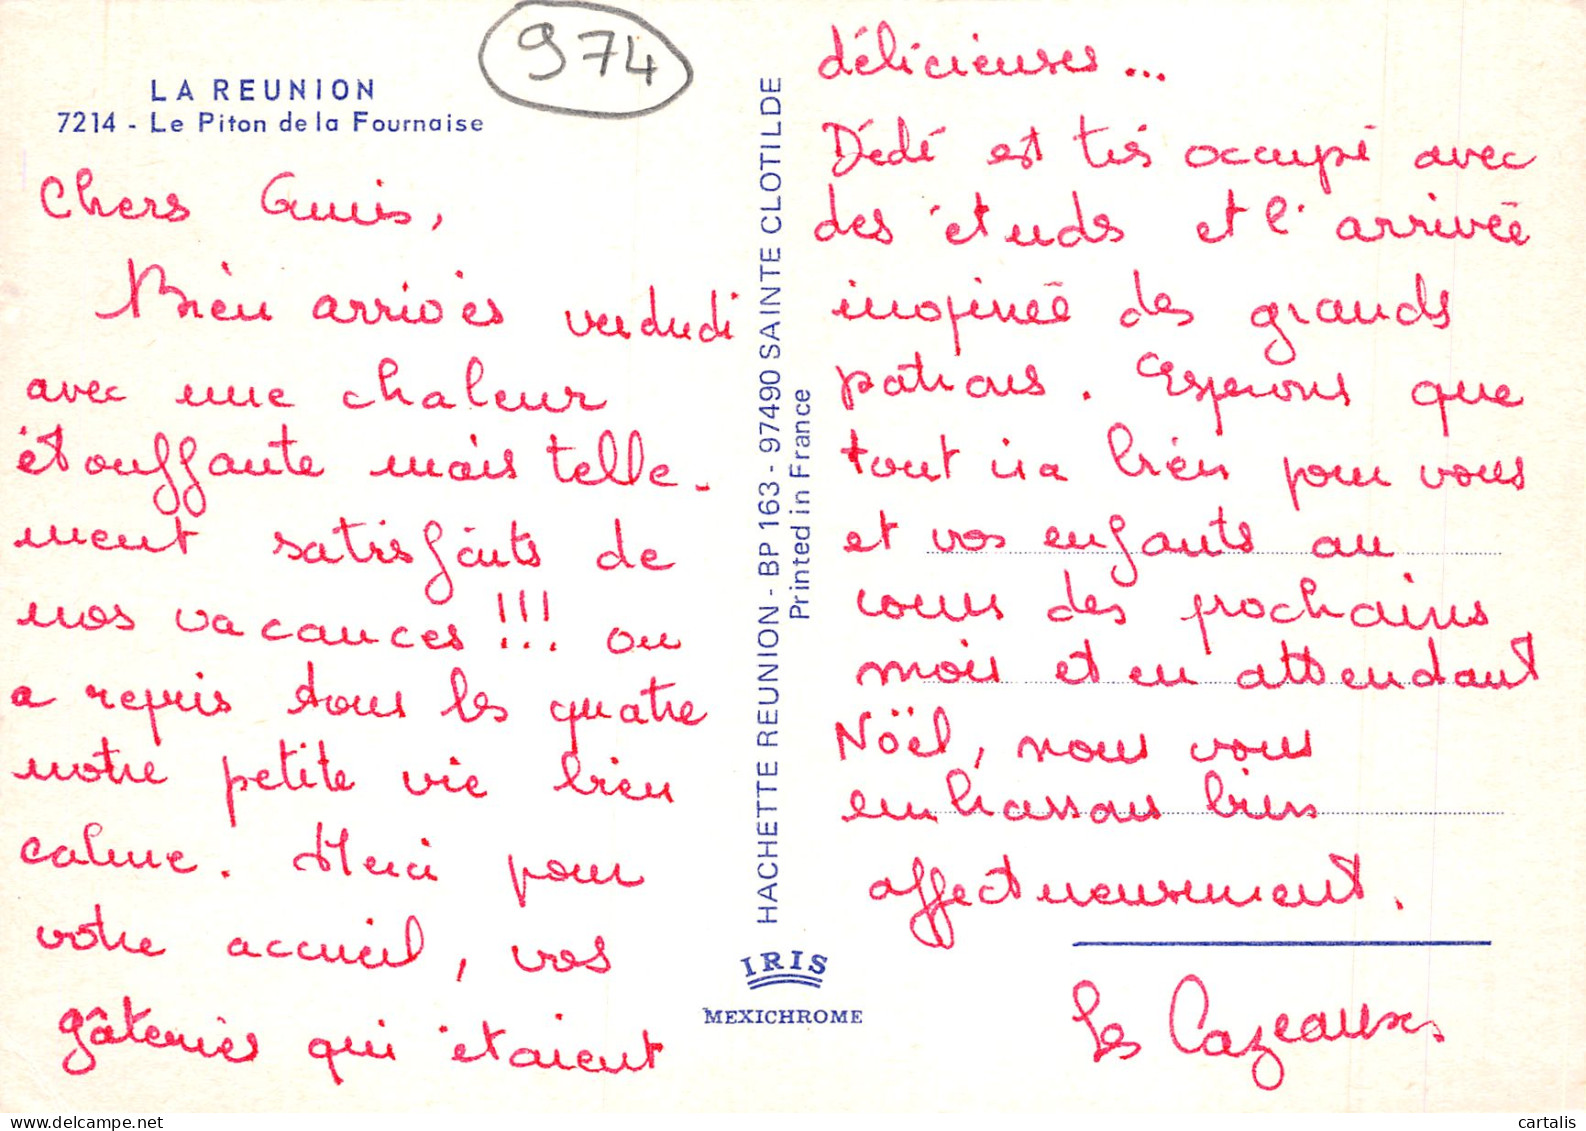 974
LA REUNION
7214 - Le Piton de la Fournaise
Chers Guis,
Bien arrivés vendredi
avec une chaleur
étouffante mais telle-
ment satisfaits de
nos vacances !!! on
a repris tous les quatre
notre petite vie bien
calme. Merci pour
votre accueil, vos
gâteries qui étaient
délicieuses...
Dédé est très occupé avec
des études et l'arrivée
inopinée des grands
patrons. Espérons que
tout ira bien pour vous
et vos enfants au
cours des prochains
mois et en attendant
Nöel, nous vous
embrassons bien
affectueusement.
Les Cazeauxes
HACHETTE REUNION - BP 163 - 97490 SAINTE CLOTILDE
Printed in France
IRIS
MEXICHROME
cartalis